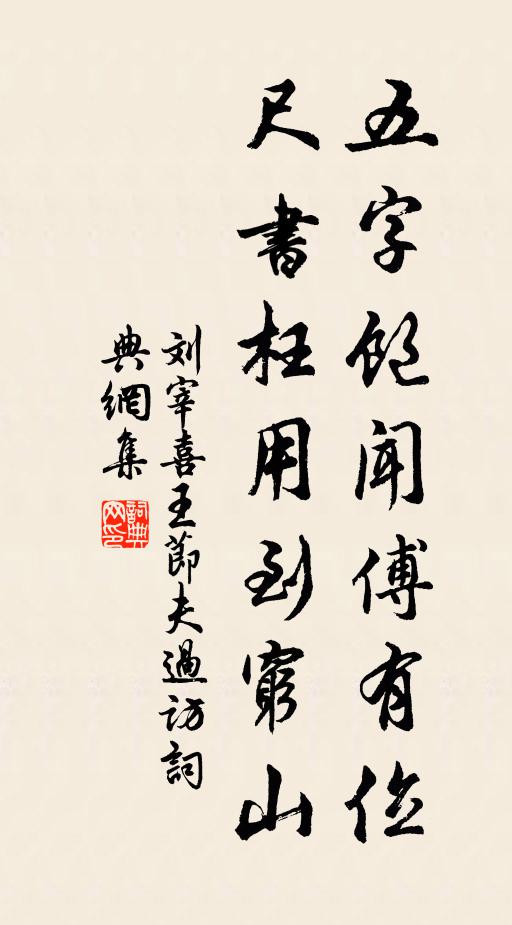 五字飽闻傅有位
尺書枉用到窮山
刘宰喜王節夫過訪詞
典網集
詞典网印